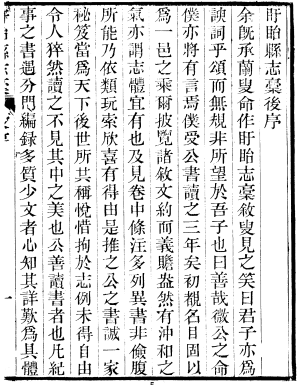 盱眙縣志稾後序
余旣承蘭叟命作盱眙志稾敘叟見之笑曰君子亦爲
諛詞乎頌而無規非所望於吾子也曰善哉微公之命
僕亦將有言焉僕受公書讀之三年矣初覩名目固以
爲一邑之乘爾披覽諸敘文約而義贍盎然有沖和之
氣亦謂志體宜有也及見卷中條注多列異書非儉腹
所能乃依類玩索欣喜有得由是推之公之書誠一家
秘笈當爲天下後世所共稱悅惜拘於志例未得自由
令人猝然讀之不見其中之美也公善讀書者也凡紀
事之書遇分門編錄多質少文者心知其詳覈爲具體
一